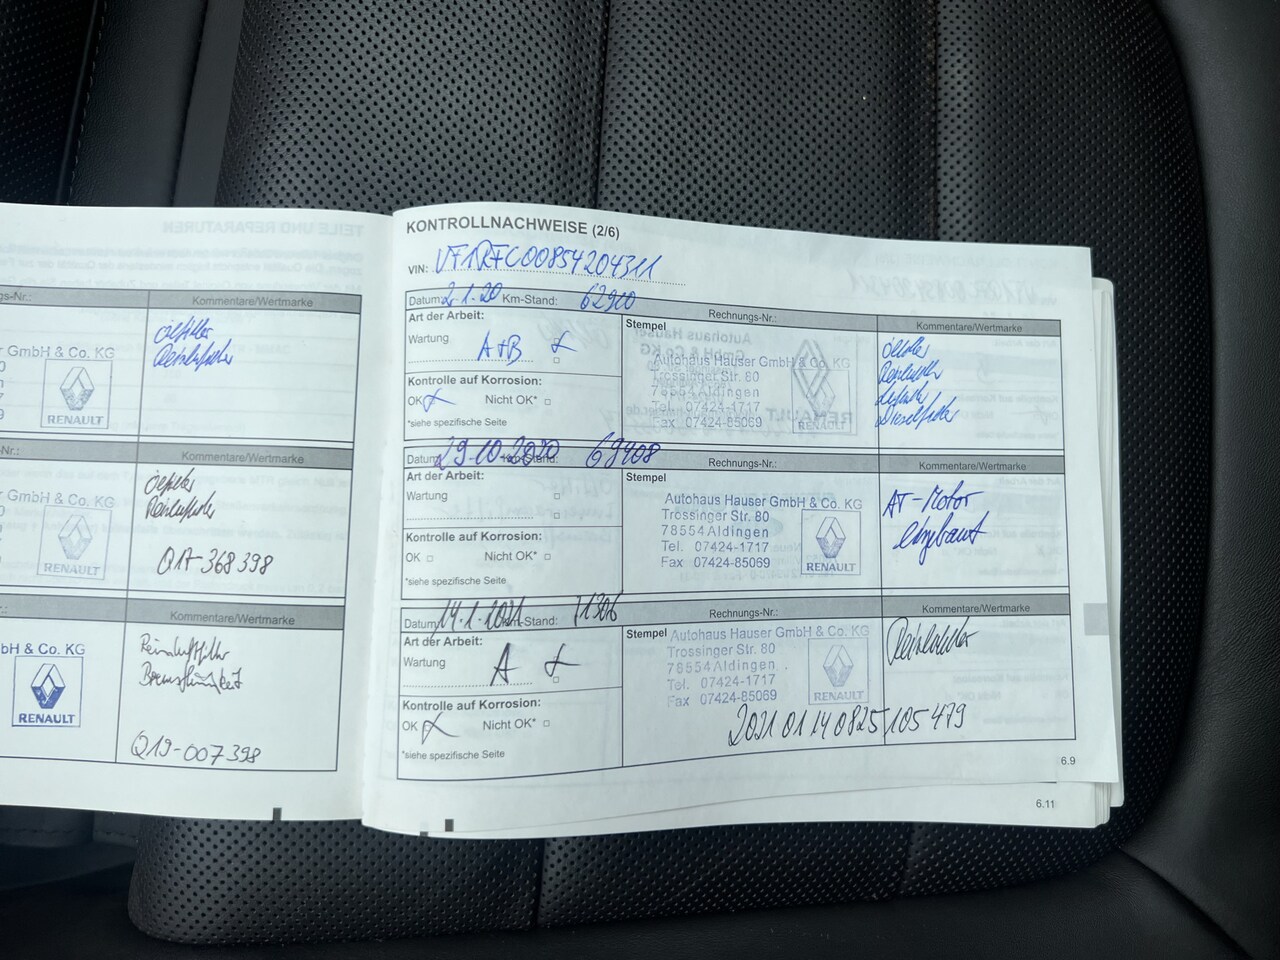 TEILE UND REPARATUREN
gs-Nr.:
Kommentare/Wertmarke
Ölfilter
Reinluftfilter
r GmbH & Co. KG
0
7
9
RENAULT
Nr.:
Kommentare/Wertmarke
Ölfilter
Reinluftfilter
r GmbH & Co. KG
RENAULT
Q17-368398
.:
Kommentare/Wertmarke
bH & Co. KG
RENAULT
Reinluftfilter
Bremsflüssigkeit
Q19-007398
KONTROLLNACHWEISE (2/6)
VIN: VF1RFC00854204311
Datum: 2.1.20 Km-Stand: 62900 Rechnungs-Nr.: Kommentare/Wertmarke
Art der Arbeit:
Wartung A+B
Kontrolle auf Korrosion:
OK Nicht OK*
*siehe spezifische Seite
Stempel
Autohaus Hauser GmbH & Co. KG
Trossinger Str. 80
78554 Aldingen
Tel. 07424-1717
Fax 07424-85069
RENAULT
Ölfilter
Reinluftfilter
Luftfilter
Dieselfilter
Datum: 29.10.2020 Km-Stand: 69408 Rechnungs-Nr.: Kommentare/Wertmarke
Art der Arbeit:
Wartung
Kontrolle auf Korrosion:
OK Nicht OK*
*siehe spezifische Seite
Stempel
Autohaus Hauser GmbH & Co. KG
Trossinger Str. 80
78554 Aldingen
Tel. 07424-1717
Fax 07424-85069
RENAULT
AT-Motor
eingebaut
Datum: 14.1.2021 Km-Stand: 71306 Rechnungs-Nr.: Kommentare/Wertmarke
Art der Arbeit:
Wartung A
Kontrolle auf Korrosion:
OK Nicht OK*
*siehe spezifische Seite
Stempel
Autohaus Hauser GmbH & Co. KG
Trossinger Str. 80
78554 Aldingen
Tel. 07424-1717
Fax 07424-85069
RENAULT
Reinluftfilter
20210114 0825 105479
6.9
6.11